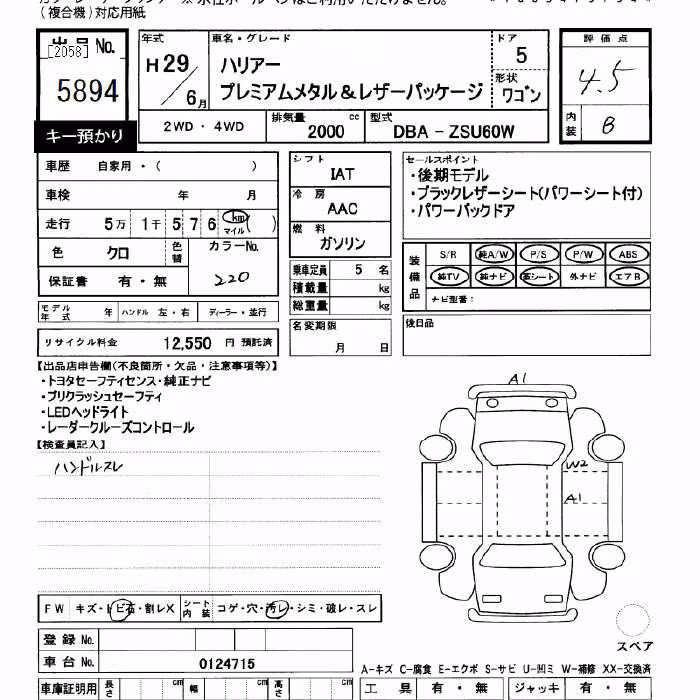 (複合機)対応用紙
出品 No.
[2058]
5894
キー預かり
年式
H29
/6月
車名・グレード
ハリアー
プレミアムメタル&レザーパッケージ
ドア
5
形状
ワゴン
2WD・4WD
排気量 2000 cc
型式 DBA - ZSU60W
評価点
4.5
内装 B
車歴 自家用・( )
車検 年 月
走行 5万 1千 5 7 6 km マイル ( )
色 クロ 色替 カラーNo. 220
保証書 有・無
モデル年式 年 ハンドル 左・右 ディーラー・並行
リサイクル料金 12,550 円 預託済
シフト
IAT
冷房
AAC
燃料
ガソリン
乗車定員 5 名
積載量 kg
総重量 kg
名変期限
月 日
セールスポイント
・後期モデル
・ブラックレザーシート(パワーシート付)
・パワーバックドア
装備品
S/R 純A/W P/S P/W ABS
純TV 純ナビ 革シート 外ナビ エアB
ナビ型番:
後日品
【出品店申告欄(不良箇所・欠品・注意事項等)】
・トヨタセーフティセンス・純正ナビ
・プリクラッシュセーフティ
・LEDヘッドライト
・レーダークルーズコントロール
【検査員記入】
ハンドルスレ
A1
W2
A1
スペア
FW キズ・トビ石・割レX シート内装 コゲ・穴・汚レ・シミ・破レ・スレ
登録 No.
車台 No. 0124715
A-キズ C-腐食 E-エクボ S-サビ U-凹ミ W-補修 XX-交換済
車庫証明用 長さ cm 幅 cm 高さ cm
工具 有・無 ジャッキ 有・無